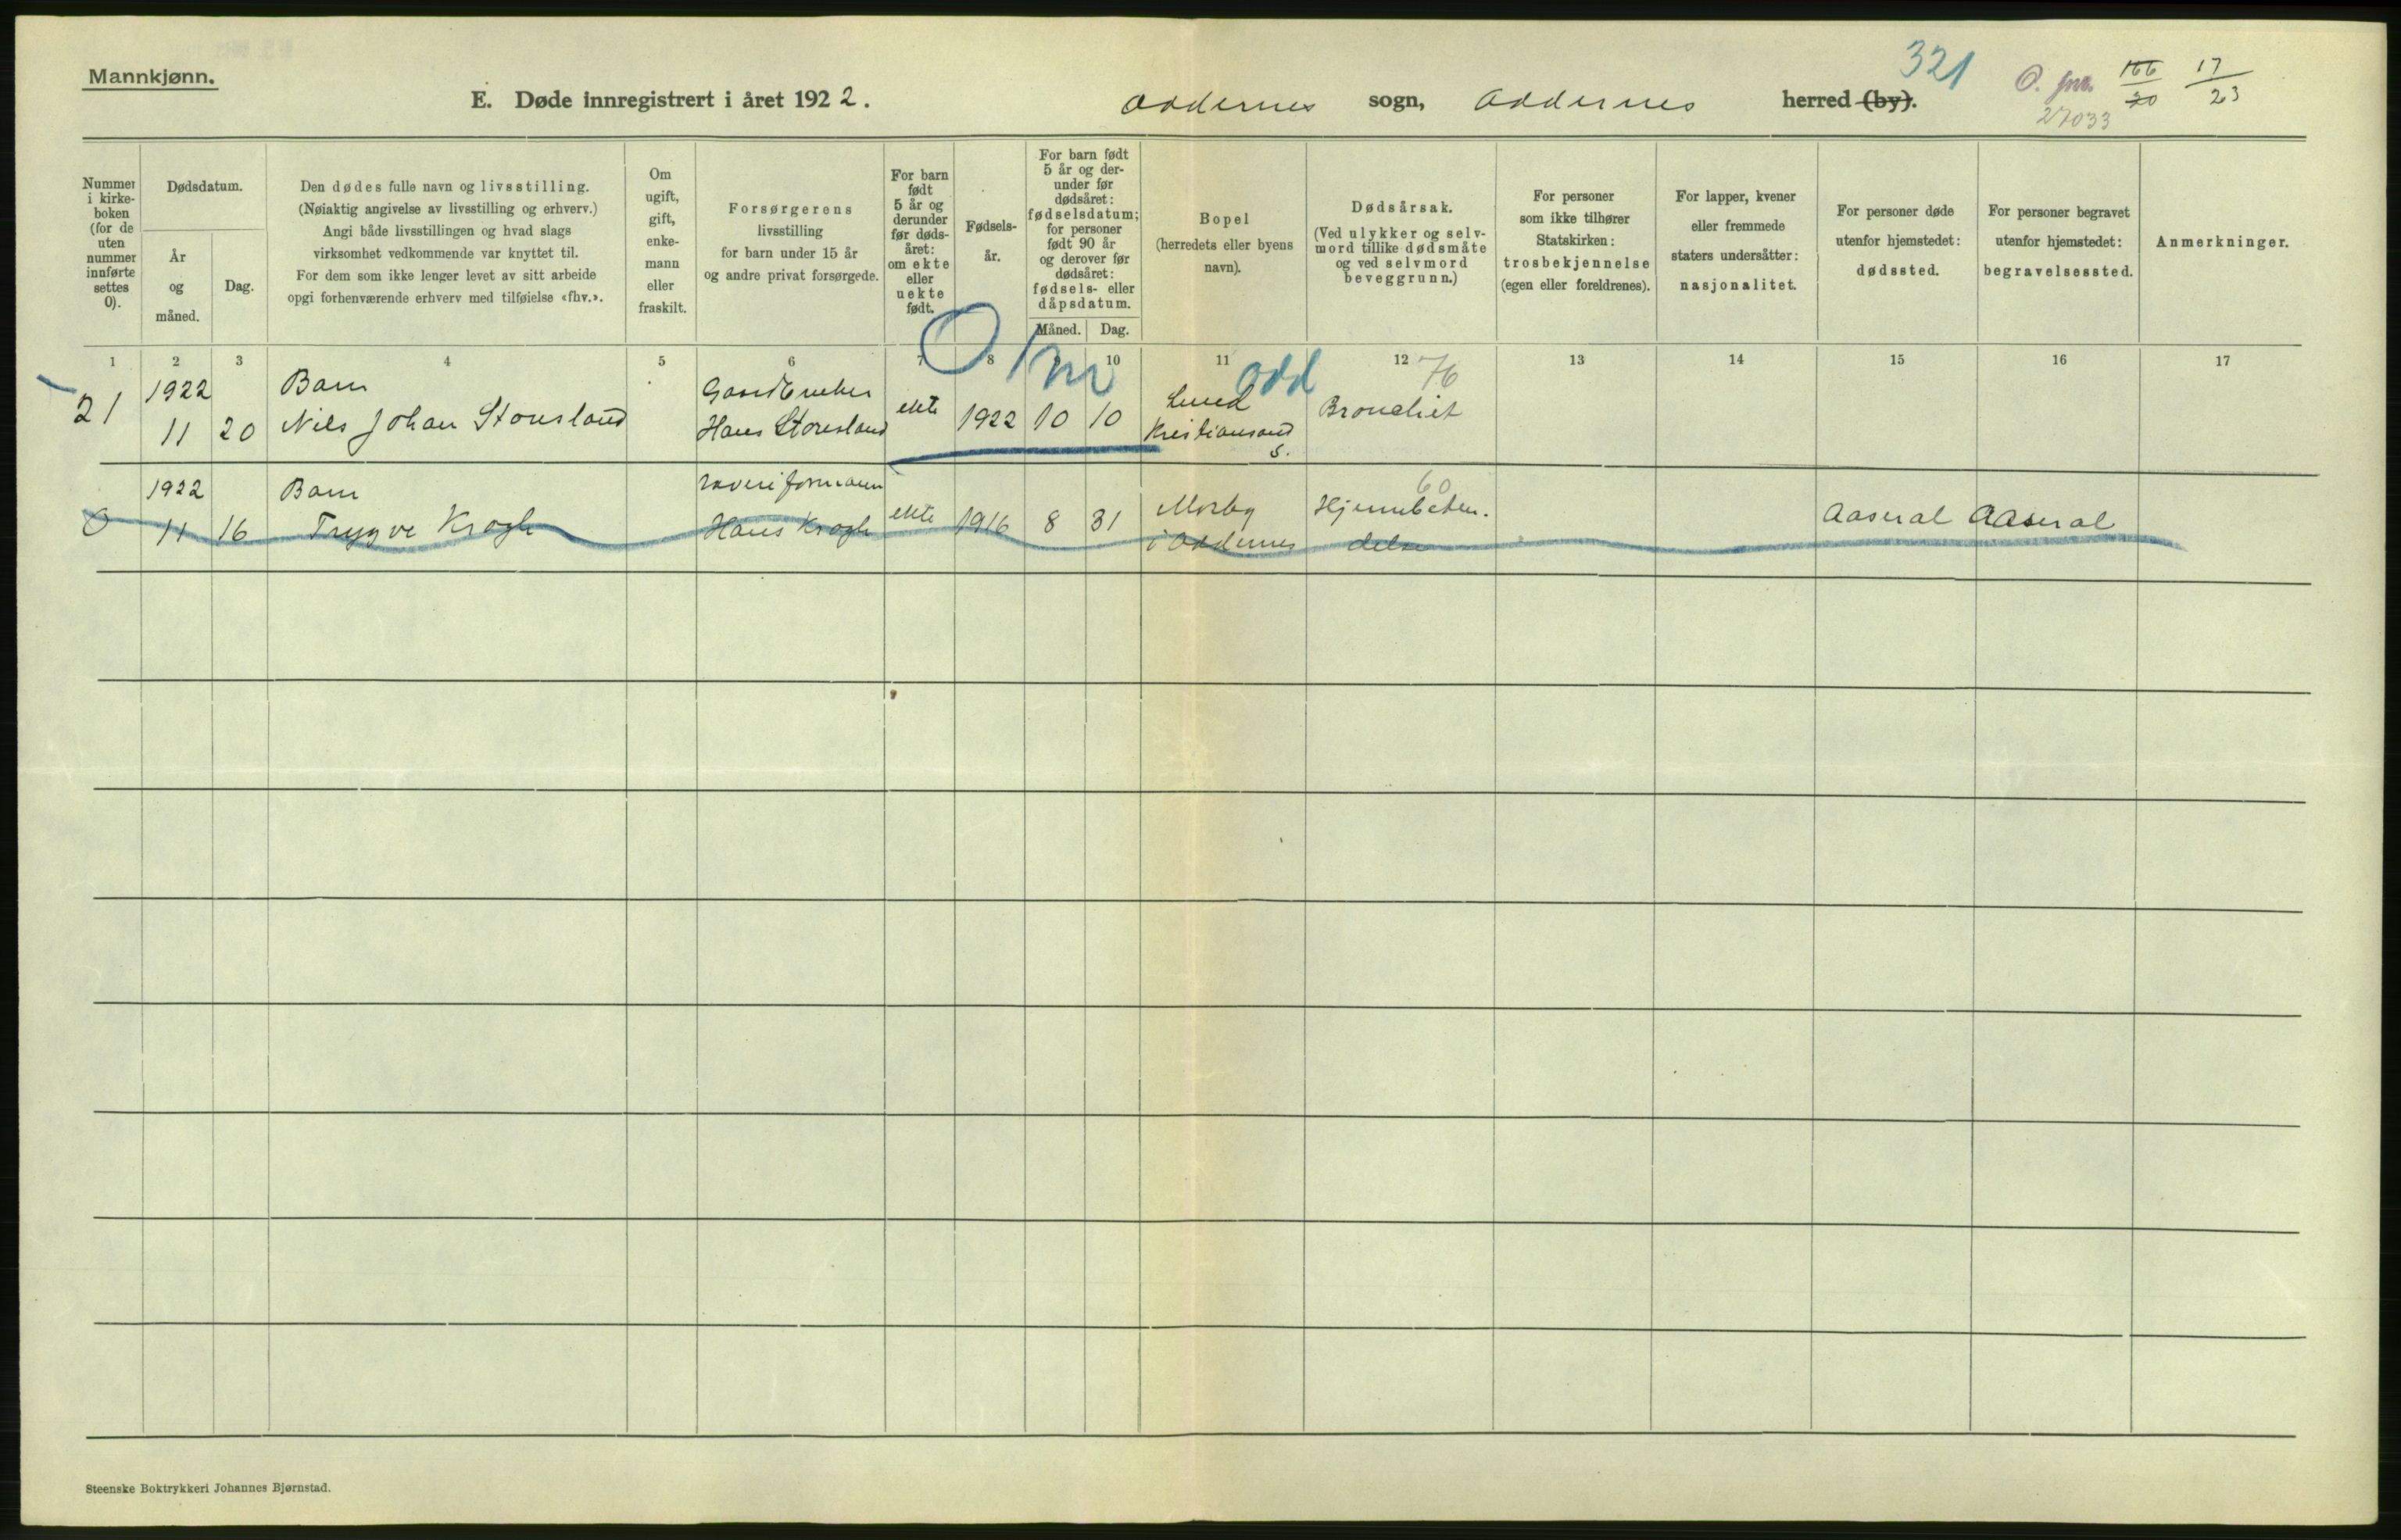 Mannkjønn.
E. Døde innregistrert i året 1922.
Oddernes sogn, Oddernes herred (by).
321
166
20
17
23
27033
Nummer i kirke-boken (for de uten nummer innførte settes 0).
Dødsdatum.
År og måned.
Dag.
Den dødes fulle navn og livsstilling.
(Nøiaktig angivelse av livsstilling og erhverv.)
Angi både livsstillingen og hvad slags
virksomhet vedkommende var knyttet til.
For dem som ikke lenger levet av sitt arbeide
opgi forhenværende erhverv med tilføielse «fhv.».
Om ugift, gift, enke-mann eller fraskilt.
Forsørgerens
livsstilling
for barn under 15 år
og andre privat forsørgede.
For barn født 5 år og derunder før døds-året: om ekte eller uekte født.
Fødsels-år.
For barn født 5 år og der-under før dødsåret: fødselsdatum; for personer født 90 år og derover før dødsåret: fødsels- eller dåpsdatum.
Måned.
Dag.
Bopel
(herredets eller byens
navn).
Dødsårsak.
(Ved ulykker og selv-
mord tillike dødsmåte
og ved selvmord
beveggrunn.)
For personer
som ikke tilhører
Statskirken:
trosbekjennelse
(egen eller foreldrenes).
For lapper, kvener
eller fremmede
staters undersåtter:
nasjonalitet.
For personer døde
utenfor hjemstedet:
dødssted.
For personer begravet
utenfor hjemstedet:
begravelsessted.
Anmerkninger.
1 2 3 4 5 6 7 8 9 10 11 12 13 14 15 16 17
Odd
76
1922 Barn Gaardbruker Lund
21 11 20 Nils Johan Stousland Hans Stousland ekte 1922 10 10 Kristiansand S. Bronchit
60
1922 Barn Væveriformann
0 11 16 Trygve Krogh Hans Krogh ekte 1916 8 31 Mosby Hjernebeten. Aaseral Aaseral
i Oddernes delse
Steenske Boktrykkeri Johannes Bjørnstad.